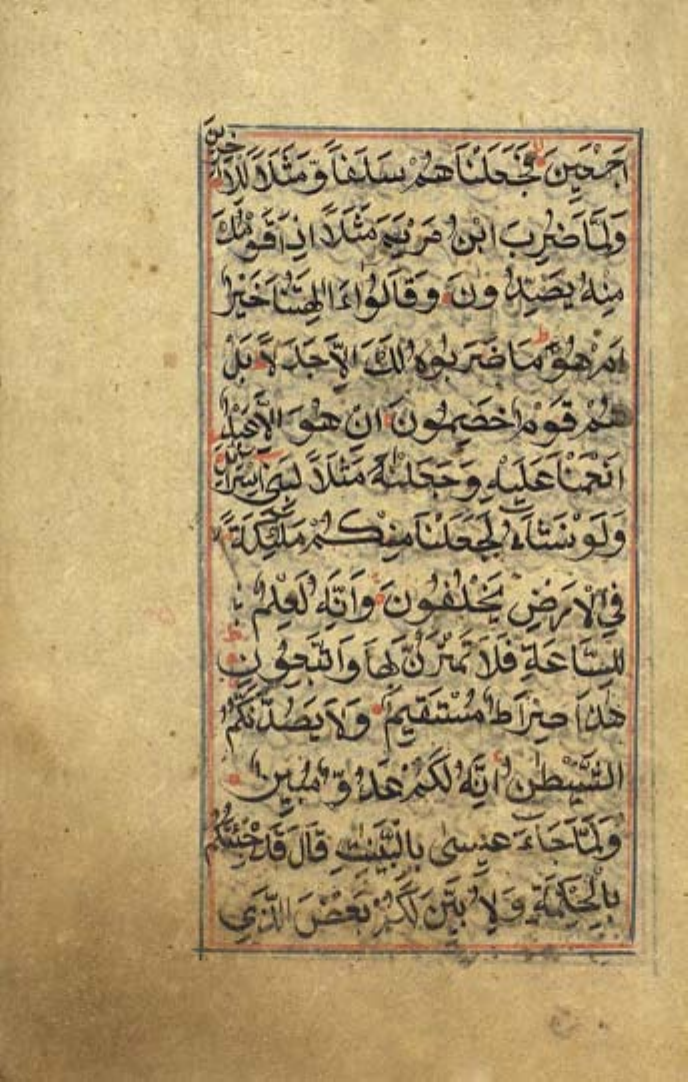 اَجْمَعِيْنَ فَجَعَلْنَاهُمْ سَلَفًا وَّمَثَلًا لِّلْاٰخِرِيْنَ
وَلَمَّا ضُرِبَ ابْنُ مَرْيَمَ مَثَلًا اِذَا قَوْمُكَ
مِنْهُ يَصِدُّوْنَ وَقَالُوْا ءَاٰلِهَتُنَا خَيْرٌ
اَمْ هُوَ مَا ضَرَبُوْهُ لَكَ اِلَّا جَدَلًا بَلْ
هُمْ قَوْمٌ خَصِمُوْنَ اِنْ هُوَ اِلَّا عَبْدٌ
اَنْعَمْنَا عَلَيْهِ وَجَعَلْنٰهُ مَثَلًا لِّبَنِيْ اِسْرَآئِيْلَ
وَلَوْ نَشَآءُ لَجَعَلْنَا مِنْكُمْ مَّلٰٓئِكَةً
فِي الْاَرْضِ يَخْلُفُوْنَ وَاِنَّهٗ لَعِلْمٌ
لِّلسَّاعَةِ فَلَا تَمْتَرُنَّ بِهَا وَاتَّبِعُوْنِ
هٰذَا صِرَاطٌ مُّسْتَقِيْمٌ وَلَا يَصُدَّنَّكُمُ
الشَّيْطٰنُ اِنَّهٗ لَكُمْ عَدُوٌّ مُّبِيْنٌ
وَلَمَّا جَآءَ عِيْسٰى بِالْبَيِّنٰتِ قَالَ قَدْ جِئْتُكُمْ
بِالْحِكْمَةِ وَلِاُبَيِّنَ لَكُمْ بَعْضَ الَّذِيْ